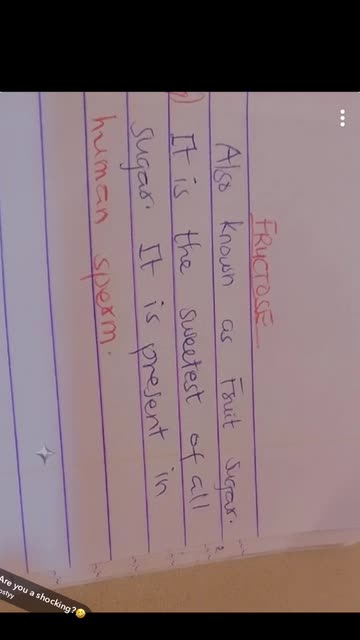 FRUCTOSE
Also known as Fruit Sugar.
It is the sweetest of all
sugar. It is present in
human sperm.
Are you a shocking?🤔